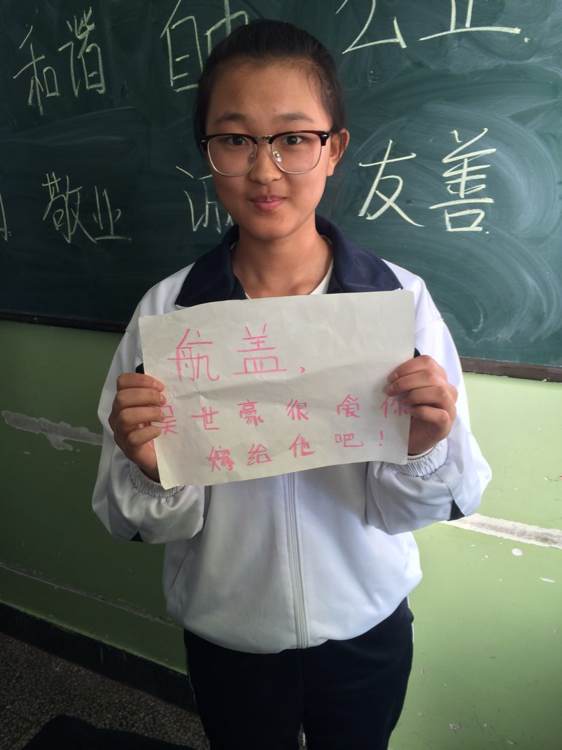 和谐 自由 公正
敬业 诚 友善
航盖，
吴世豪很爱你
嫁给他吧！